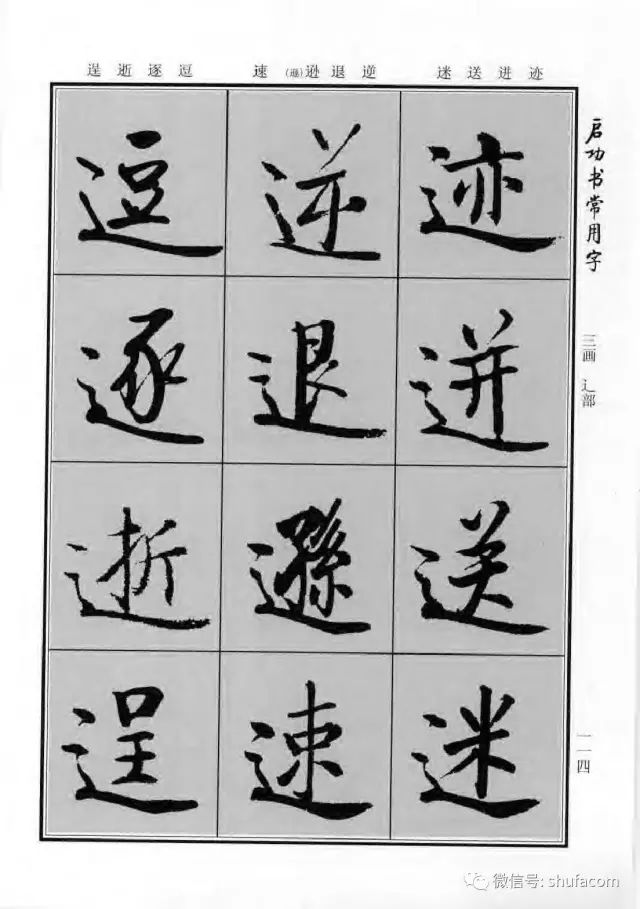 迹 迸 送 迷 逆 退 逊(遜) 速 逗 逐 逝 逞
启功书常用字
三画 辶部
一一四
迹迸送迷
逆退遜速
逗逐逝逞
微信号: shufacom